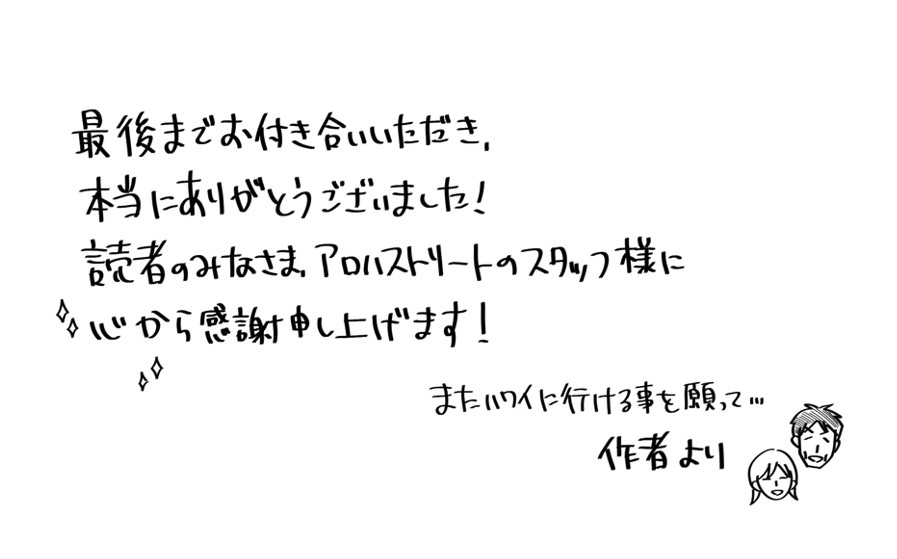 最後までお付き合いいただき、
本当にありがとうございました！
読者のみなさま、アロハストリートのスタッフ様に
心から感謝申し上げます！
またハワイに行ける事を願って…
作者より